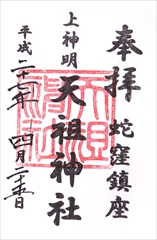 奉拝
蛇窪鎮座
上神明
天祖神社
平成二十七年
四月二十五日